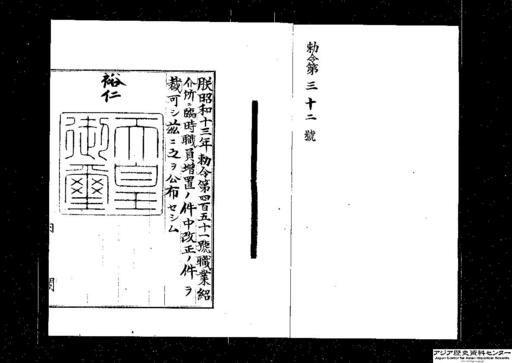 勅令第三十二號
朕昭和十三年勅令第四百五十一號職業紹
介所ニ臨時職員増置ノ件中改正ノ件ヲ
裁可シ茲ニ之ヲ公布セシム
裕仁
天皇
御璽
内閣
アジア歴史資料センター
Japan Center for Asian Historical Records